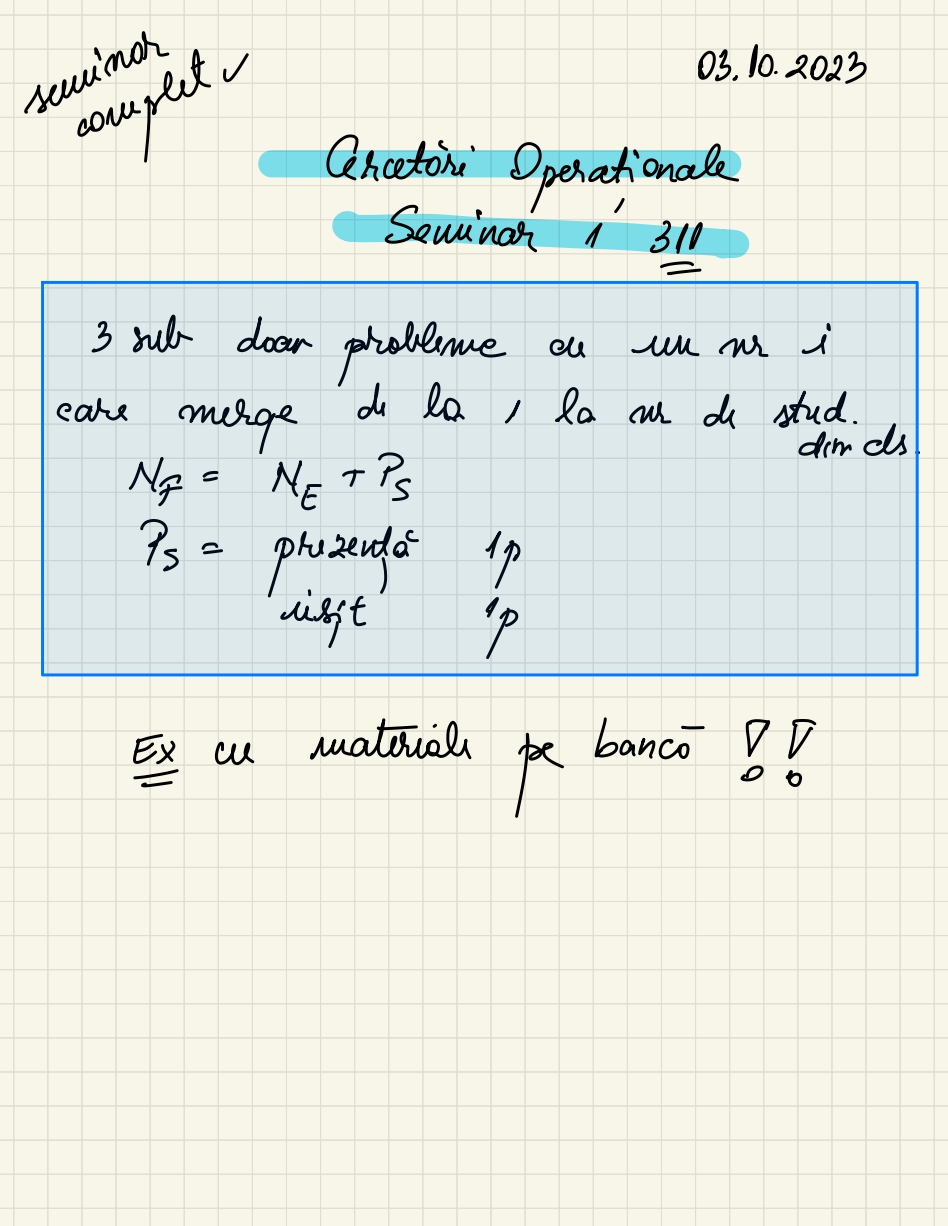 seminar
complet ✓
03.10.2023
Cercetări Operaționale
Seminar 1 311
3 sub doar probleme cu un nr i
care merge de la 1 la nr de stud.
din cls.
N_F = N_E + P_S
P_S = prezență 1p
1p
Ex cu materiale pe bancă !!